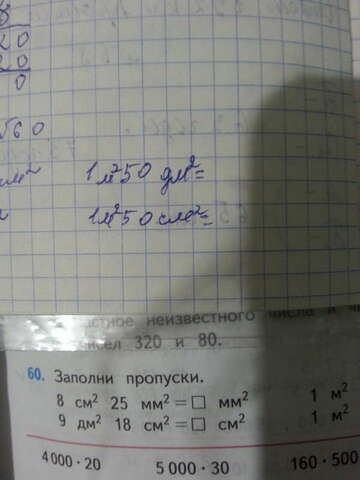 8
20
20
0
560
см² 1 м² 50 дм² =
1 м² 50 см² =
частное неизвестного числа и
чисел 320 и 80.
60. Заполни пропуски.
8 см² 25 мм² = □ мм² 1 м²
9 дм² 18 см² = □ см² 1 м²
4 000 · 20 5 000 · 30 160 · 500